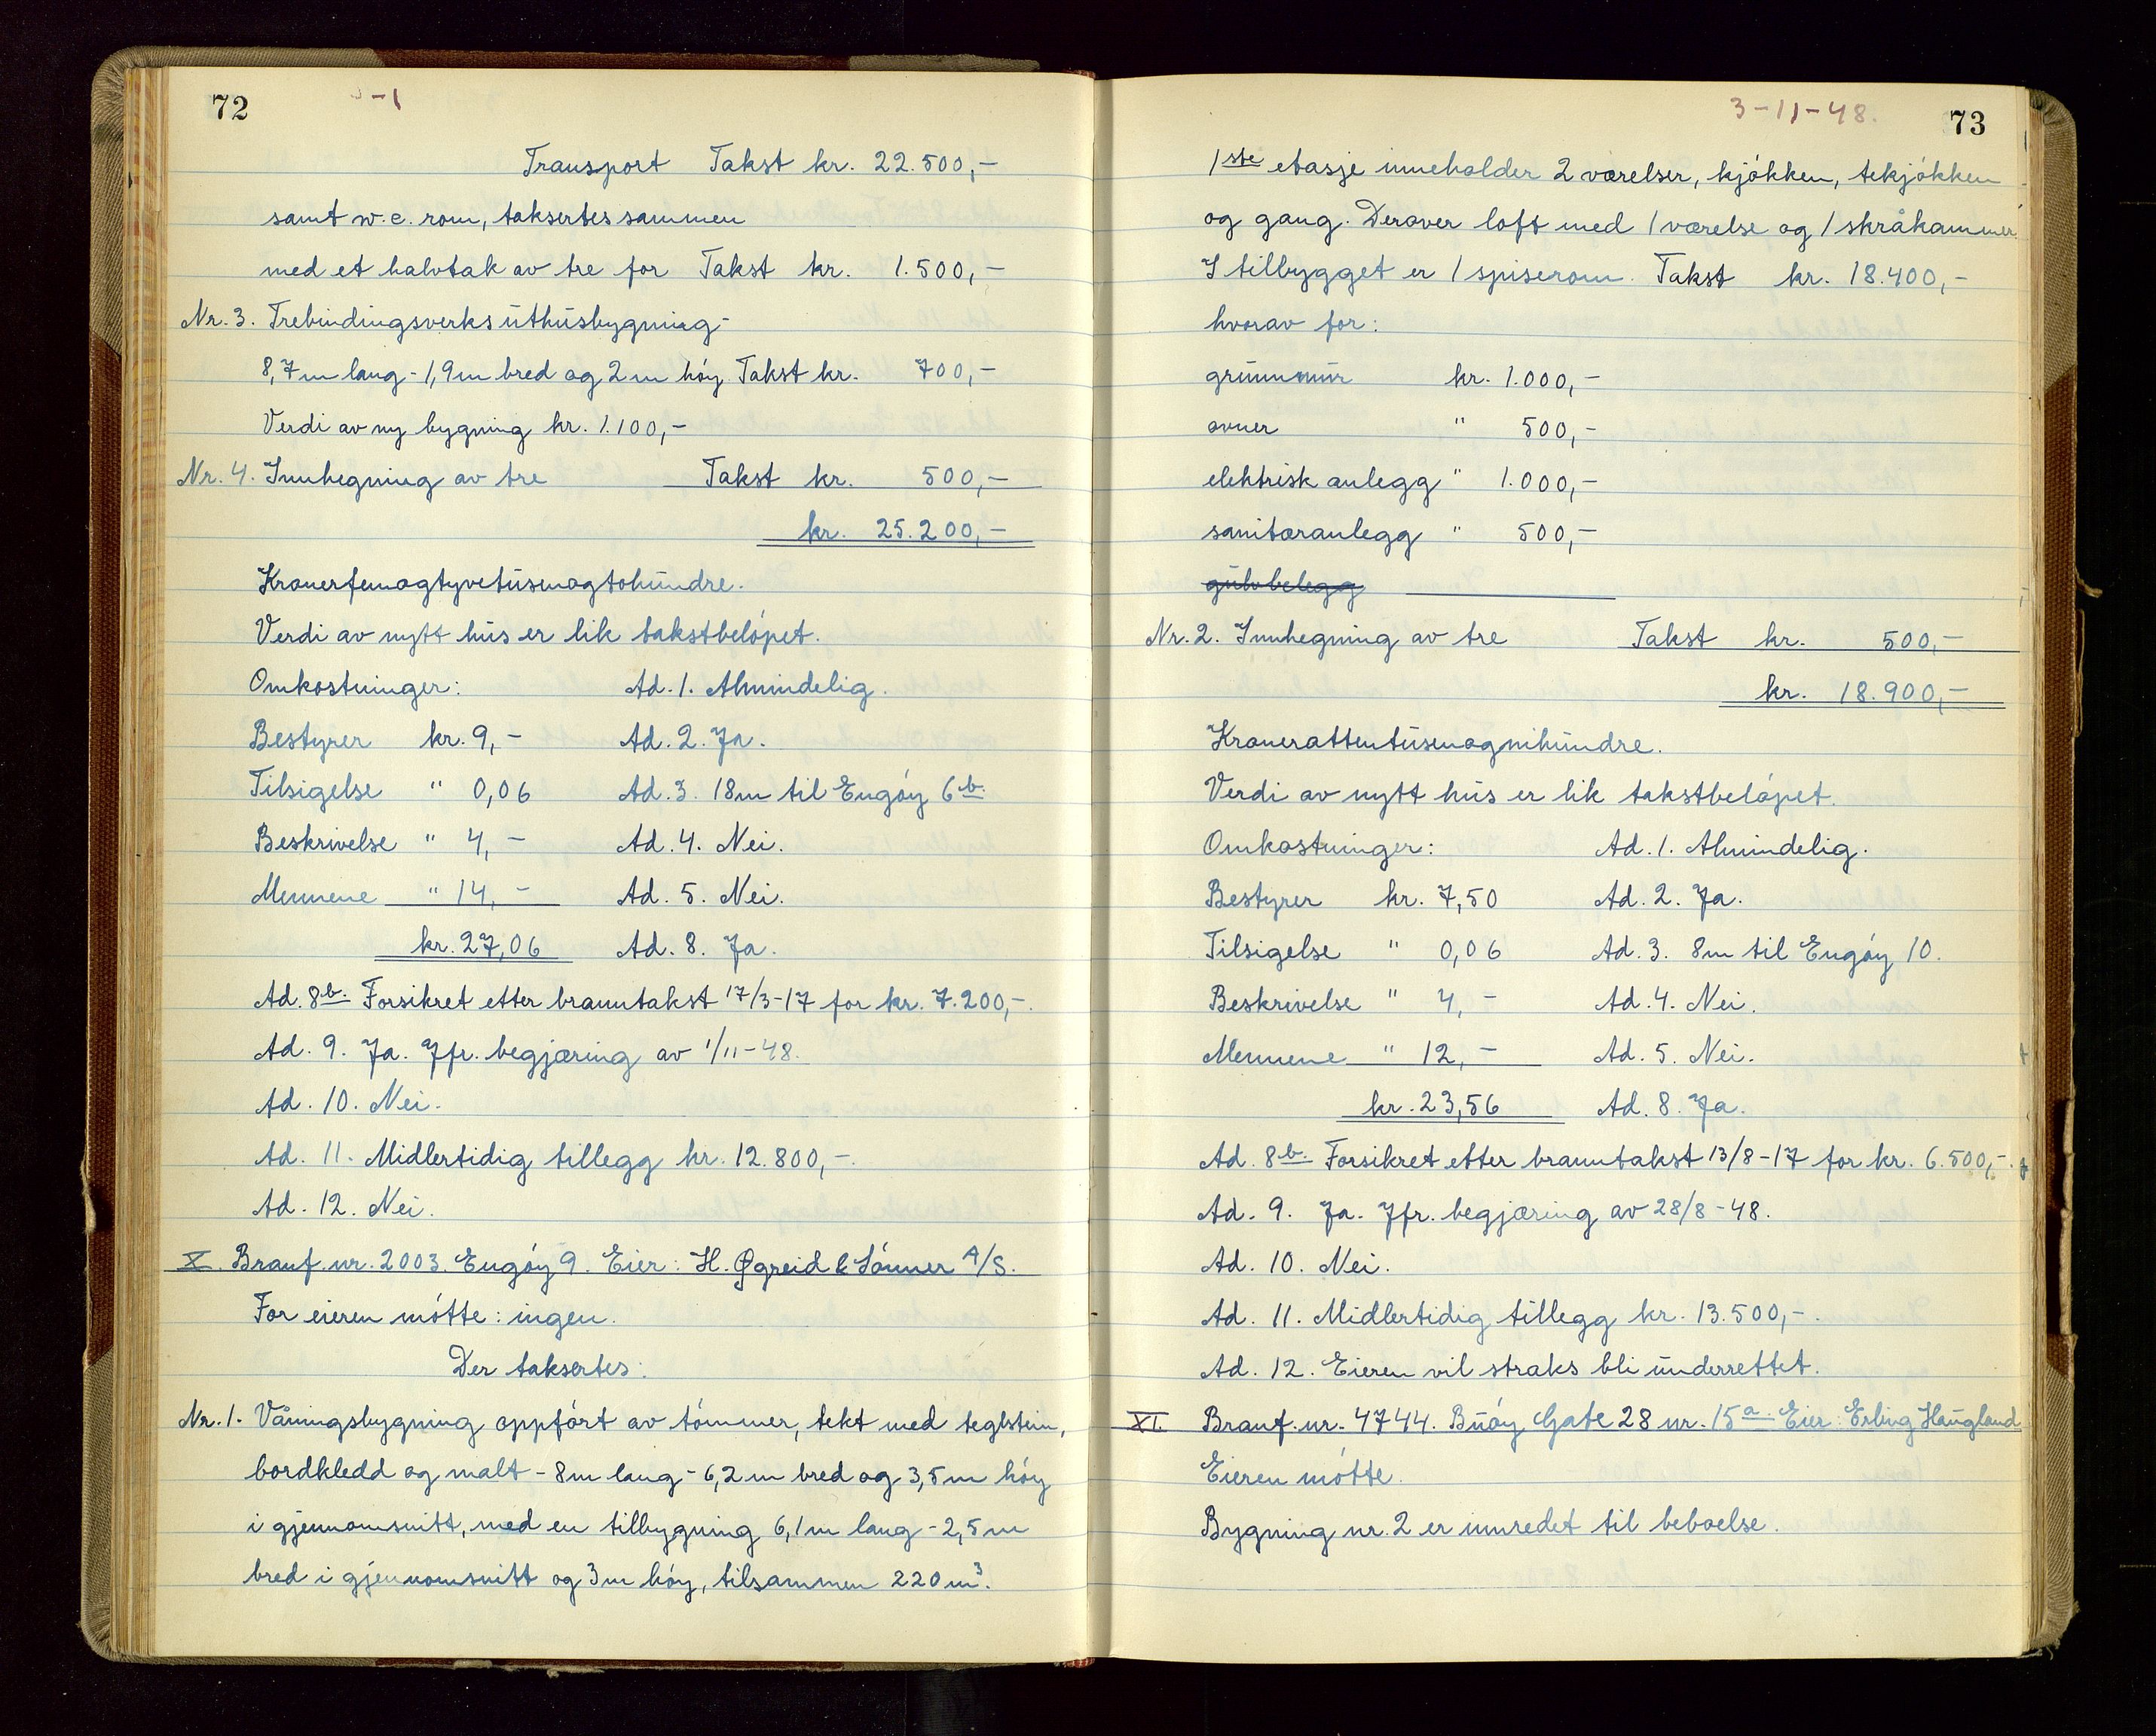 72
-1
Transport Takst kr. 22.500,-
samt w.c. rom, taksertes sammen
med et halvtak av tre for Takst kr. 1.500,-
Nr. 3. Trebindingsverks uthusbygning-
8,7 m lang - 1,9 m bred og 2 m høy Takst kr. 700,-
Verdi av ny bygning kr. 1.100,-
Nr. 4. Innhegning av tre Takst kr. 500,-
kr. 25.200,-
Kronerfemogtyvetusenogtohundre.
Verdi av nytt hus er lik takstbeløpet.
Omkostninger: Ad. 1. Almindelig.
Bestyrer kr. 9,- Ad. 2. Ja.
Tilsigelse " 0,06 Ad. 3. 18m til Engøy 6b.
Beskrivelse " 4,- Ad. 4. Nei.
Mennene " 14,- Ad. 5. Nei.
kr. 27,06 Ad. 8. Ja.
Ad. 8b. Forsikret etter branntakst 17/3-17 for kr. 7.200,-.
Ad. 9. Ja. Jfr. begjæring av 1/11-48.
Ad. 10. Nei.
Ad. 11. Midlertidig tillegg kr. 12.800,-.
Ad. 12. Nei.
X. Branf. nr. 2003. Engøy 9. Eier: H. Øgreid & Sønner A/S.
For eieren møtte: ingen.
Der taksertes:
Nr. 1. Våningsbygning oppført av tømmer, tekt med teglstein,
bordkledd og malt - 8m lang - 6,2 m bred og 3,5 m høy
i gjennomsnitt, med en tilbygning 6,1 m lang - 2,5 m
bred i gjennomsnitt og 3m høy, tilsammen 220 m³.
3-11-48.
73
1ste etasje inneholder 2 værelser, kjøkken, tekjøkken
og gang. Derover loft med 1 værelse og 1 skråkammer.
I tilbygget er 1 spiserom. Takst kr. 18.400,-
hvorav for:
grunnmur kr. 1.000,-
ovner " 500,-
elektrisk anlegg " 1.000,-
sanitæranlegg " 500,-
gulvbelegg
Nr. 2. Innhegning av tre Takst kr. 500,-
kr. 18.900,-
Kronerattentusenognihundre.
Verdi av nytt hus er lik takstbeløpet.
Omkostninger: Ad. 1. Almindelig.
Bestyrer kr. 7,50 Ad. 2. Ja.
Tilsigelse " 0,06 Ad. 3. 8m til Engøy 10.
Beskrivelse " 4,- Ad. 4. Nei.
Mennene " 12,- Ad. 5. Nei.
kr. 23,56 Ad. 8. Ja.
Ad. 8b. Forsikret etter branntakst 13/8-17 for kr. 6.500,-.
Ad. 9. Ja. Jfr. begjæring av 28/8-48.
Ad. 10. Nei.
Ad. 11. Midlertidig tillegg kr. 13.500,-.
Ad. 12. Eieren vil straks bli underrettet.
XI. Branf. nr. 4744. Buøy Gate 28 nr. 15a. Eier: Erling Haugland
Eieren møtte.
Bygning nr. 2 er innredet til beboelse.